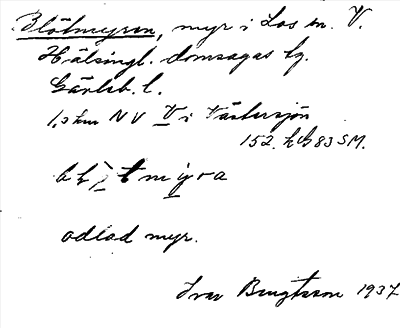 Blötmyren, myr i Los sn. V.
Hälsingl. domsagas tg.
Gävleb. l.
1,3 km NV V i Tästersjön
152. h G 83 SM.
myra
odlad myr.
Ivar Bengtsson 1937